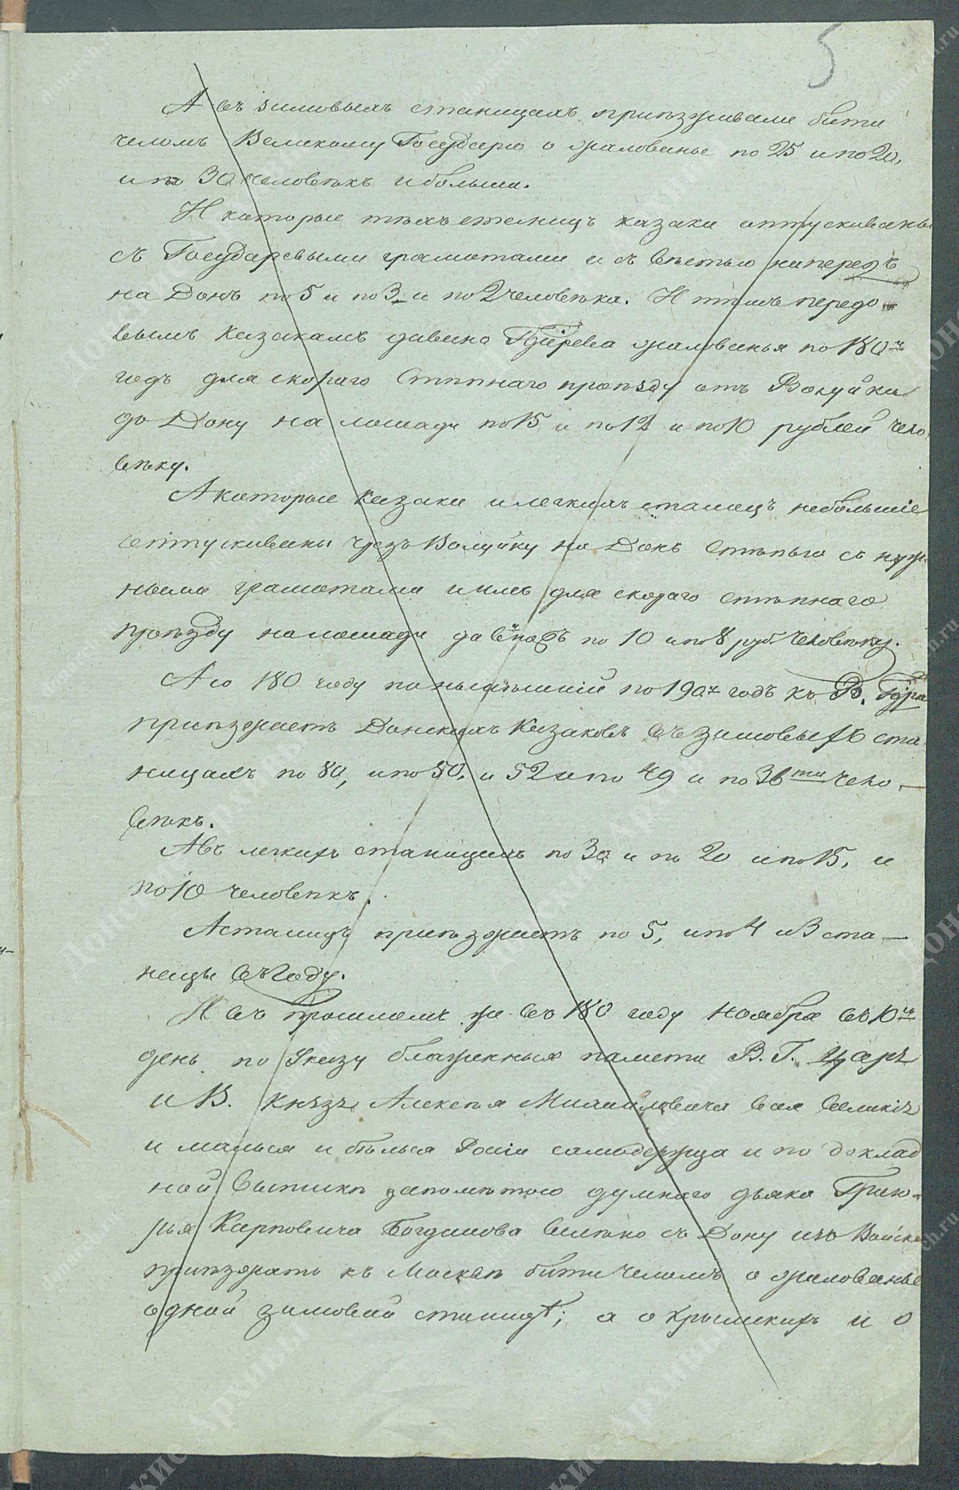 5
А въ зимовыхъ станицахъ приѣзживали бити
челомъ Великому Государю о жалованье по 25 и по 20,
и по 30 человѣкъ и больши.
И которые тѣхъ станицъ казаки отпускиваны
съ Государевыми грамотами и съ вѣстью напередъ
на Донъ по 5 и по 3 и по 2 человѣка. И тѣмъ передо-
вымъ казакамъ давано Гдрева жалованья по 180-й
годъ для скораго степнаго проѣзду отъ Волуйки
до Дону на лошади по 15 и по 12 и по 10 рублей чело-
вѣку.
А которые казаки и легкихъ станицъ небольшіе
отпускиваны чрезъ Волуйку на Донъ степью съ нуж-
ными грамотами и имъ для скораго степнаго
проѣзду на лошади давано по 10 и по 8 руб. человѣку.
А со 180 году по нынѣшній по 190й годъ къ В. Гдрю
приѣзжаетъ Донскихъ Казаковъ въ зимовыхъ ста-
ницахъ по 80, и по 50, и 52 и по 49 и по 36ти чело-
вѣкъ.
А въ легкихъ станицахъ по 30 и по 20 и по 15, и
по 10 человѣкъ.
А станицъ приѣзжаетъ по 5, и по 4 и 3 ста-
ницы въ году.
И въ прошломъ же въ 180 году ноября въ 10й
день по Указу блаженныя памети В. Г. Царя
и В. Князя Алексѣя Михайловича всея великія
и малыя и бѣлыя Росіи самодержца и по доклад
ной выпискѣ запометою думнаго дьяка Григо-
рья Карповича Богданова велѣно съ Дону изъ Войска
приѣзжать къ Москвѣ бити челомъ о жалованье
одной зимовой станицѣ; а о крымскихъ и о